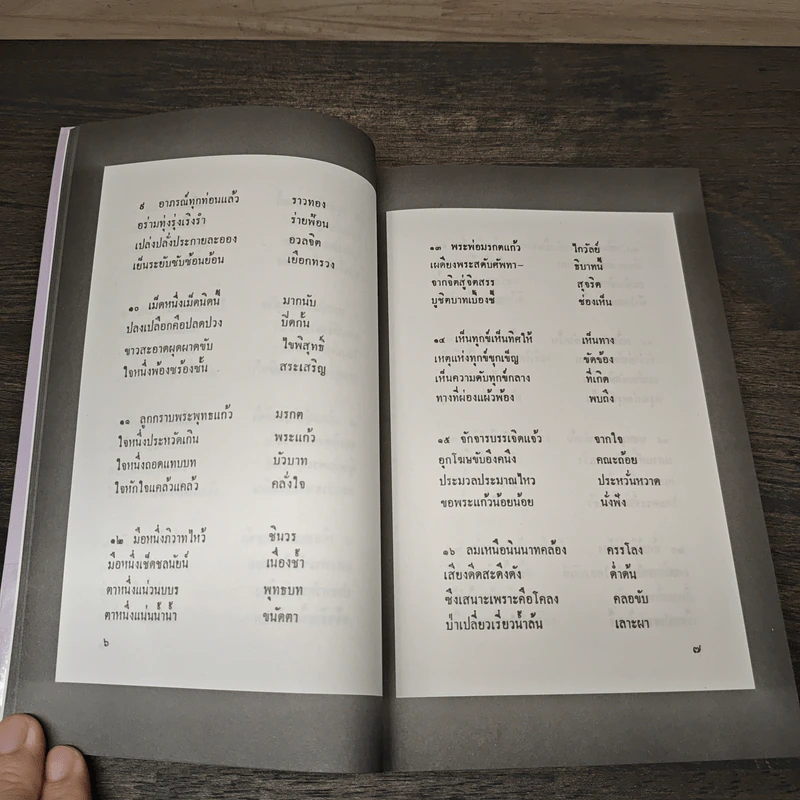 ๙ อาภรณ์ทุกท่อนแล้ว ราวทอง
อร่ามทุ่งรุ่งเริงรำ ร่ายฟ้อน
เปล่งปลั่งประกายละออง อวลจิต
เย็นระยับซับซ้อนย้อน เยือกทรวง
๑๐ เม็ดหนึ่งเม็ดนิดนี้ มากนับ
ปลงเปลือกคือปลดปวง ปิดกั้น
ขาวสะอาดผุดผาดขับ ไขพิสุทธิ์
ใจหนึ่งพ้องซร้องซั้น สระเสริญ
๑๑ ลูกกราบพระพุทธแก้ว มรกต
ใจหนึ่งประหวัดเกิน พระแก้ว
ใจหนึ่งถอดแทบบท บัวบาท
ใจหักใจแคล้วแคล้ว คลั่งใจ
๑๒ มือหนึ่งภิวาทไหว้ ชินวร
มือหนึ่งเช็ดชลนัยน์ เนื่องช้ำ
ตาหนึ่งแน่วนบบร พุทธบท
ตาหนึ่งแน่นน้ำน้ำ ขนัดตา
๖
๑๓ พระพ่อมรกตแก้ว ไกวัลย์
เผดียงพระสดับศัพทา- ธิบาทนี้
จากจิตสู่จิตสรร สุจริต
บูชิตบาทเบื้องชี้ ช่องเห็น
๑๔ เห็นทุกข์เห็นทิศให้ เห็นทาง
เหตุแห่งทุกข์ขุกเข็ญ ขัดข้อง
เห็นความดับทุกข์กลาง ที่เกิด
ทางที่ผ่องแผ้วพ้อง พบถึง
๑๕ จักจารบรรเจิดแจ้ว จากใจ
อุกโฆษขับอึงคนึง คณะถ้อย
ประมวลประมาณไหว ประหวั่นหวาด
ขอพระแก้วน้อยน้อย นั่งฟัง
๑๖ ลมเหนือนินนาทคล้อง ครรโลง
เสียงดีดสะดึงดัง ด่ำด้น
ซึงเสนาะเพราะคือโคลง คลอขับ
ป่าเปลี่ยวเรี่ยวน้ำล้น เลาะผา
๗